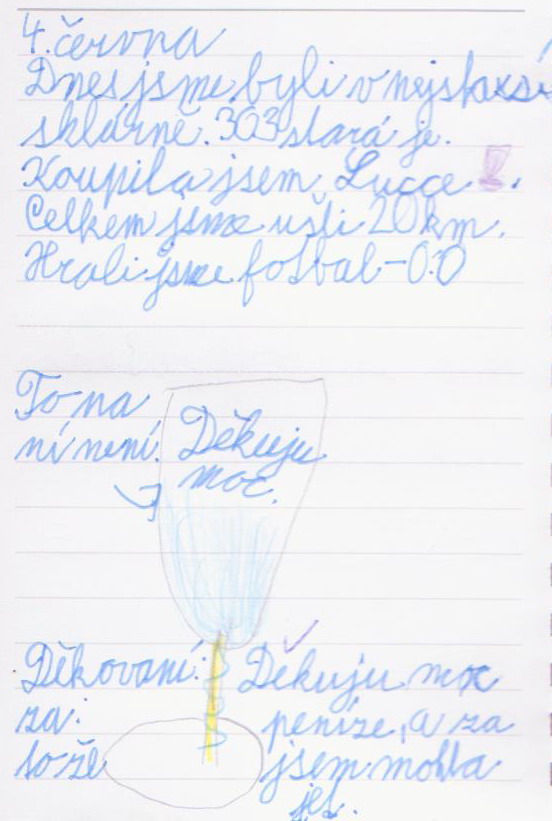 4. června
Dnes jsme byli v nejstarší
sklárně. 303 stará je.
Koupila jsem Lucce.
Celkem jsme ušli 20 km.
Hráli jsme fotbal - 0:0
To na
ní není.
Děkuju
moc.
Děkovaní:
za:
to že
Děkuju moc
peníze, a za
jsem mohla
jet.